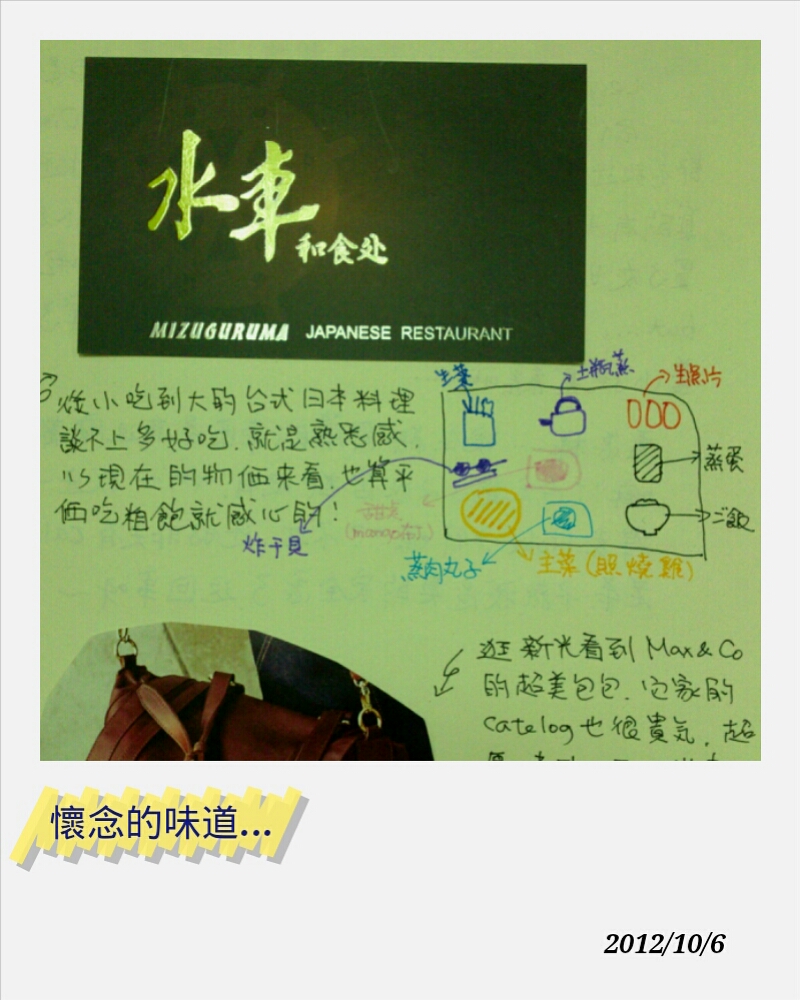 水車
和食处
MIZUGURUMA JAPANESE RESTAURANT
從小吃到大的台式日本料理
談不上多好吃,就是熟悉感,
以現在的物価來看,也算平
価吃粗飽就感心的!
生菜
土瓶蒸
生魚片
蒸蛋
ご飯
甜湯
炸干貝
蒸肉丸子
主菜(照燒雞)
逛新光看到 Max & Co
的超美包包,它家的
Catelog也很貴気,超
懷念的味道...
2012/10/6